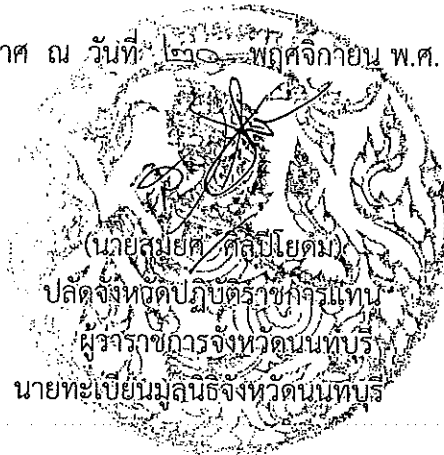 าศ ณ วันที่ ๒๑ พฤศจิกายน พ.ศ.
(นายสมยศ ศิลปีโยดม)
ปลัดจังหวัดปฏิบัติราชการแทน
ผู้ว่าราชการจังหวัดนนทบุรี
นายทะเบียนมูลนิธิจังหวัดนนทบุรี